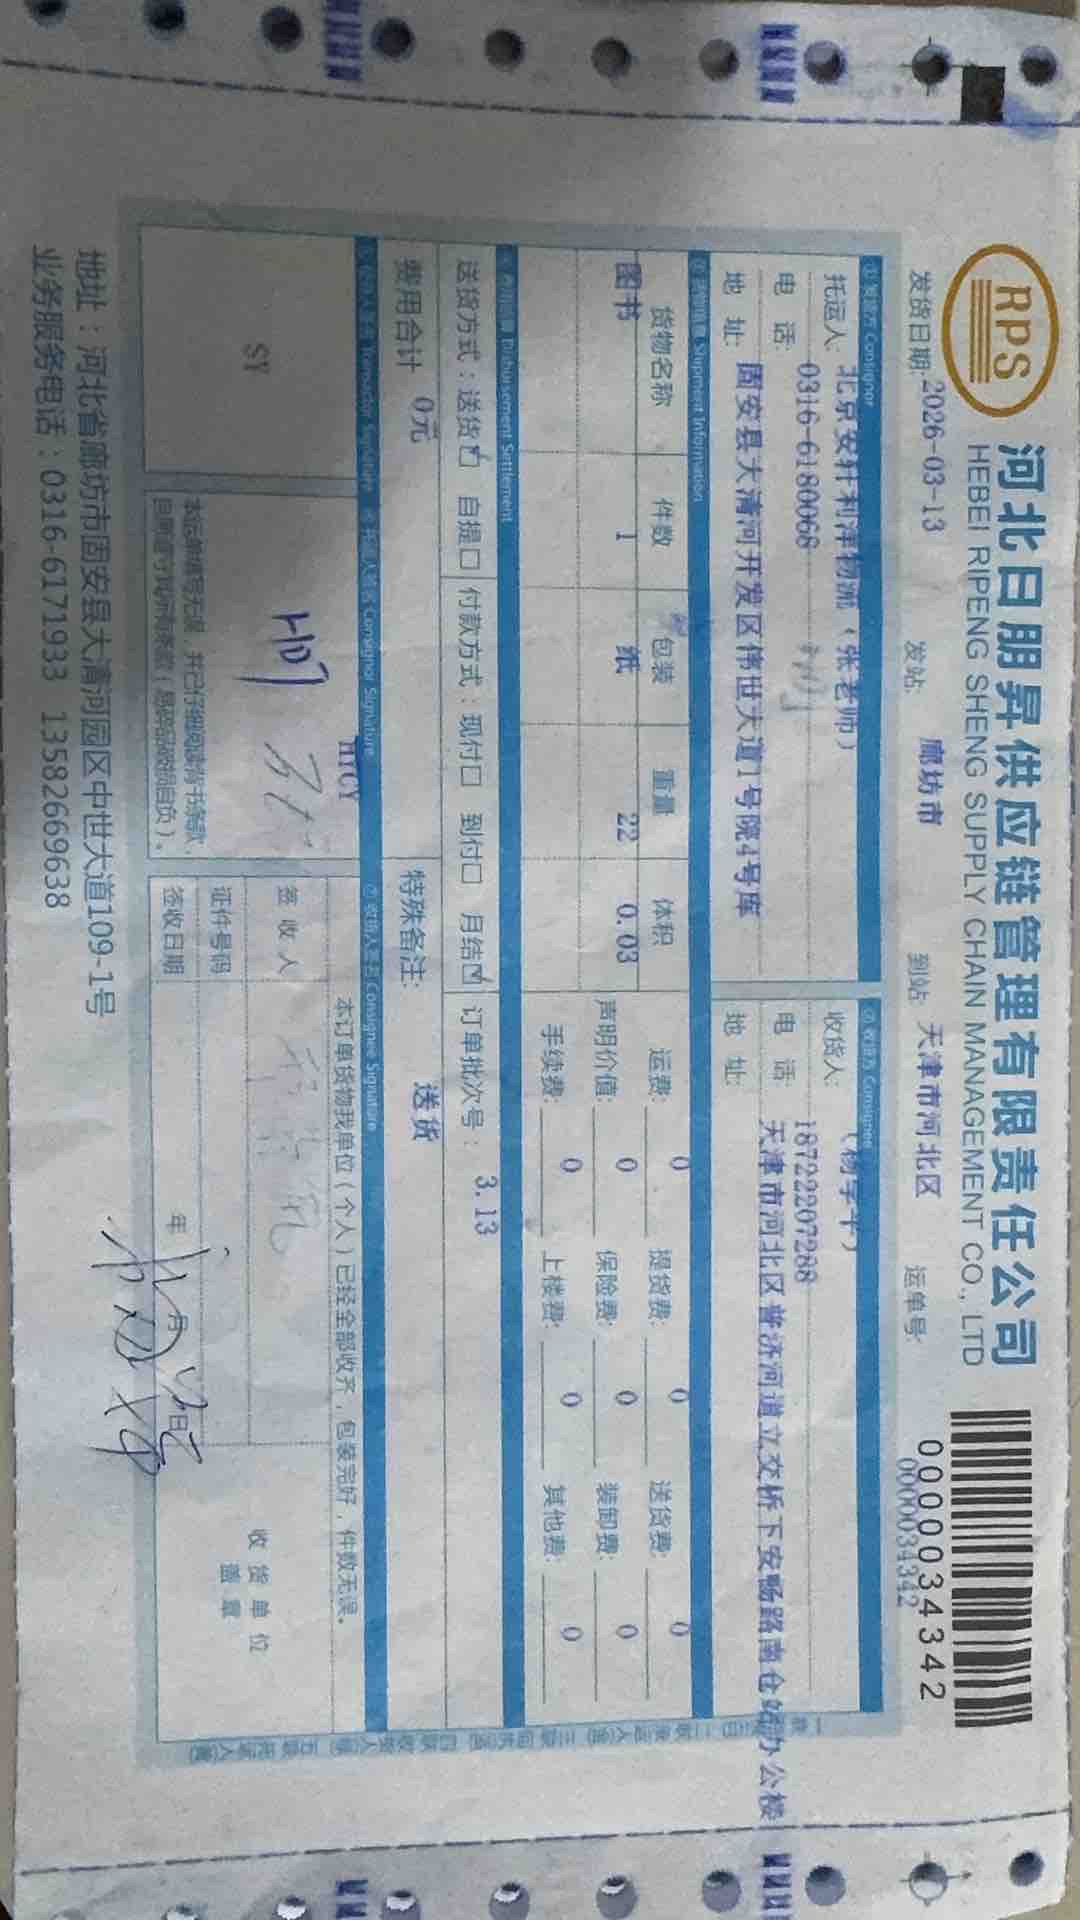 RPS
河北日朋昇供应链管理有限责任公司
HEBEI RIPENG SHENG SUPPLY CHAIN MANAGEMENT CO., LTD
0000034342
发货日期: 2026-03-13 发站: 廊坊市 到站: 天津市河北区 运单号: 0000034342
①发货方 Consignor
托运人: 北京安轩利泽物流（张老师）
电 话: 0316-6180068
地 址: 固安县大清河开发区伟世大道1号院4号库
②收货方 Consignee
收货人:
电 话: 18722207288
地 址: 天津市河北区普济河道立交桥下安畅路南仓站办公楼
③货物信息 Shipment Information
货物名称 件数 包装 重量 体积
图书 1 纸 22 0.03
运费: 0 提货费: 0 送货费: 0
声明价值: 0 保险费: 0 装卸费: 0
手续费: 0 上楼费: 0 其他费: 0
Disbursement Settlement
送货方式：送货☑ 自提口 付款方式：现付口 到付口 月结☑ 订单批次号： 3.13
费用合计 0元 特殊备注: 送货
Transactor Signature
SY
托运人签名 Consignor Signature
HTCY
本运单填写无误，并已仔细阅读背书条款，
⑦收货人签名 Consignee Signature
本订单货物我单位（个人）已经全部收齐，包装完好，件数无误。
签 收 人
证件号码
签收日期 年 月 日
收 货 单 位
盖 章
地址：河北省廊坊市固安县大清河园区中世大道109-1号
业务服务电话：0316-6171933 13582669638